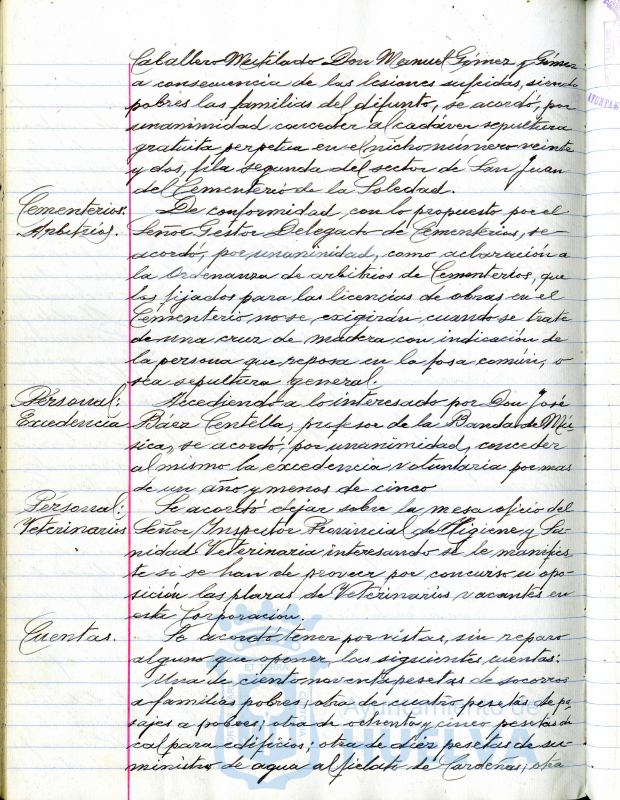 Caballero Mutilado Don Manuel Gómez y Gómez
a consecuencia de las lesiones sufridas, siendo
pobres las familias del difunto, se acordó, por
unanimidad conceder al cadáver sepultura
gratuita perpetua en el nicho número veinte
y dos, fila segunda del sector de San Juan
del Cementerio de la Soledad.
Cementerios.
Arbitrios.
De conformidad, con lo propuesto por el
Señor Gestor Delegado de Cementerios, se
acordó, por unanimidad, como aclaración a
la Ordenanza de arbitrios de Cementerios, que
los fijados para las licencias de obras en el
Cementerio, no se exigirán, cuando se trate
de una cruz de madera con indicación de
la persona que reposa en la fosa común, o
sea sepultura general.
Personal:
Excedencia
Accediendo a lo interesado por Don José
Báez Centella, profesor de la Banda de Mú-
sica, se acordó, por unanimidad, conceder
al mismo la excedencia voluntaria por mas
de un año y menos de cinco
Personal:
Veterinarios
Se acordó dejar sobre la mesa oficio del
Señor Inspector Provincial de Higiene y Sa-
nidad Veterinaria interesando se le manifies-
te si se han de proveer por concurso u opo-
sición las plazas de Veterinarios vacantes en
esta Corporación.
Cuentas.
Se acordó tener por vistas, sin reparo
alguno que oponer, las siguientes cuentas:
Una de ciento noventa pesetas de socorros
a familias pobres; otra de cuatro pesetas de pa-
sajes a pobres; otra de ochenta y cinco pesetas de
cal para edificios; otra de diez pesetas de su-
ministro de agua al fielato de Cardenas; otra
Ayuntamiento de
HUELVA